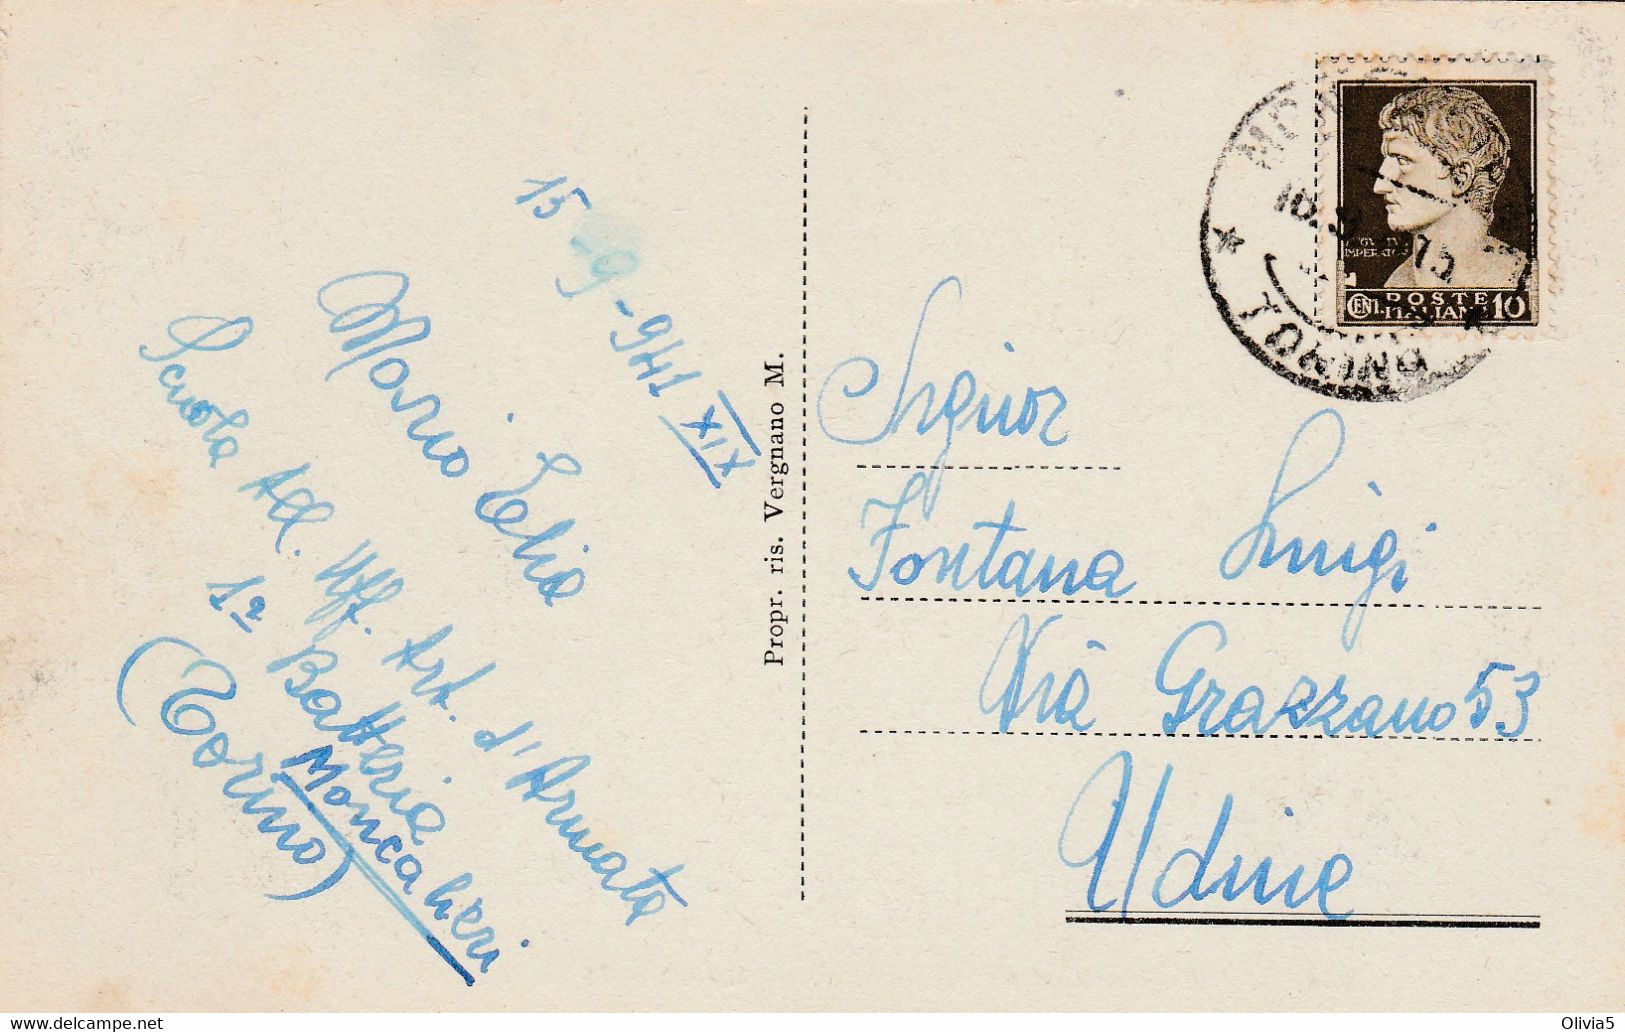 15-9-941 XIX
Mario Elia
Scuola All. Uff. Art. d'Armata
1ª Batteria
Moncalieri
(Torino)
Propr. ris. Vergnano M.
TORINO
AVGVSTVS
IMPERATOR
CENT. POSTE ITALIANE 10
Signor
Fontana Luigi
Via Grazzano 53
Udine
delcampe.net
Olivia5